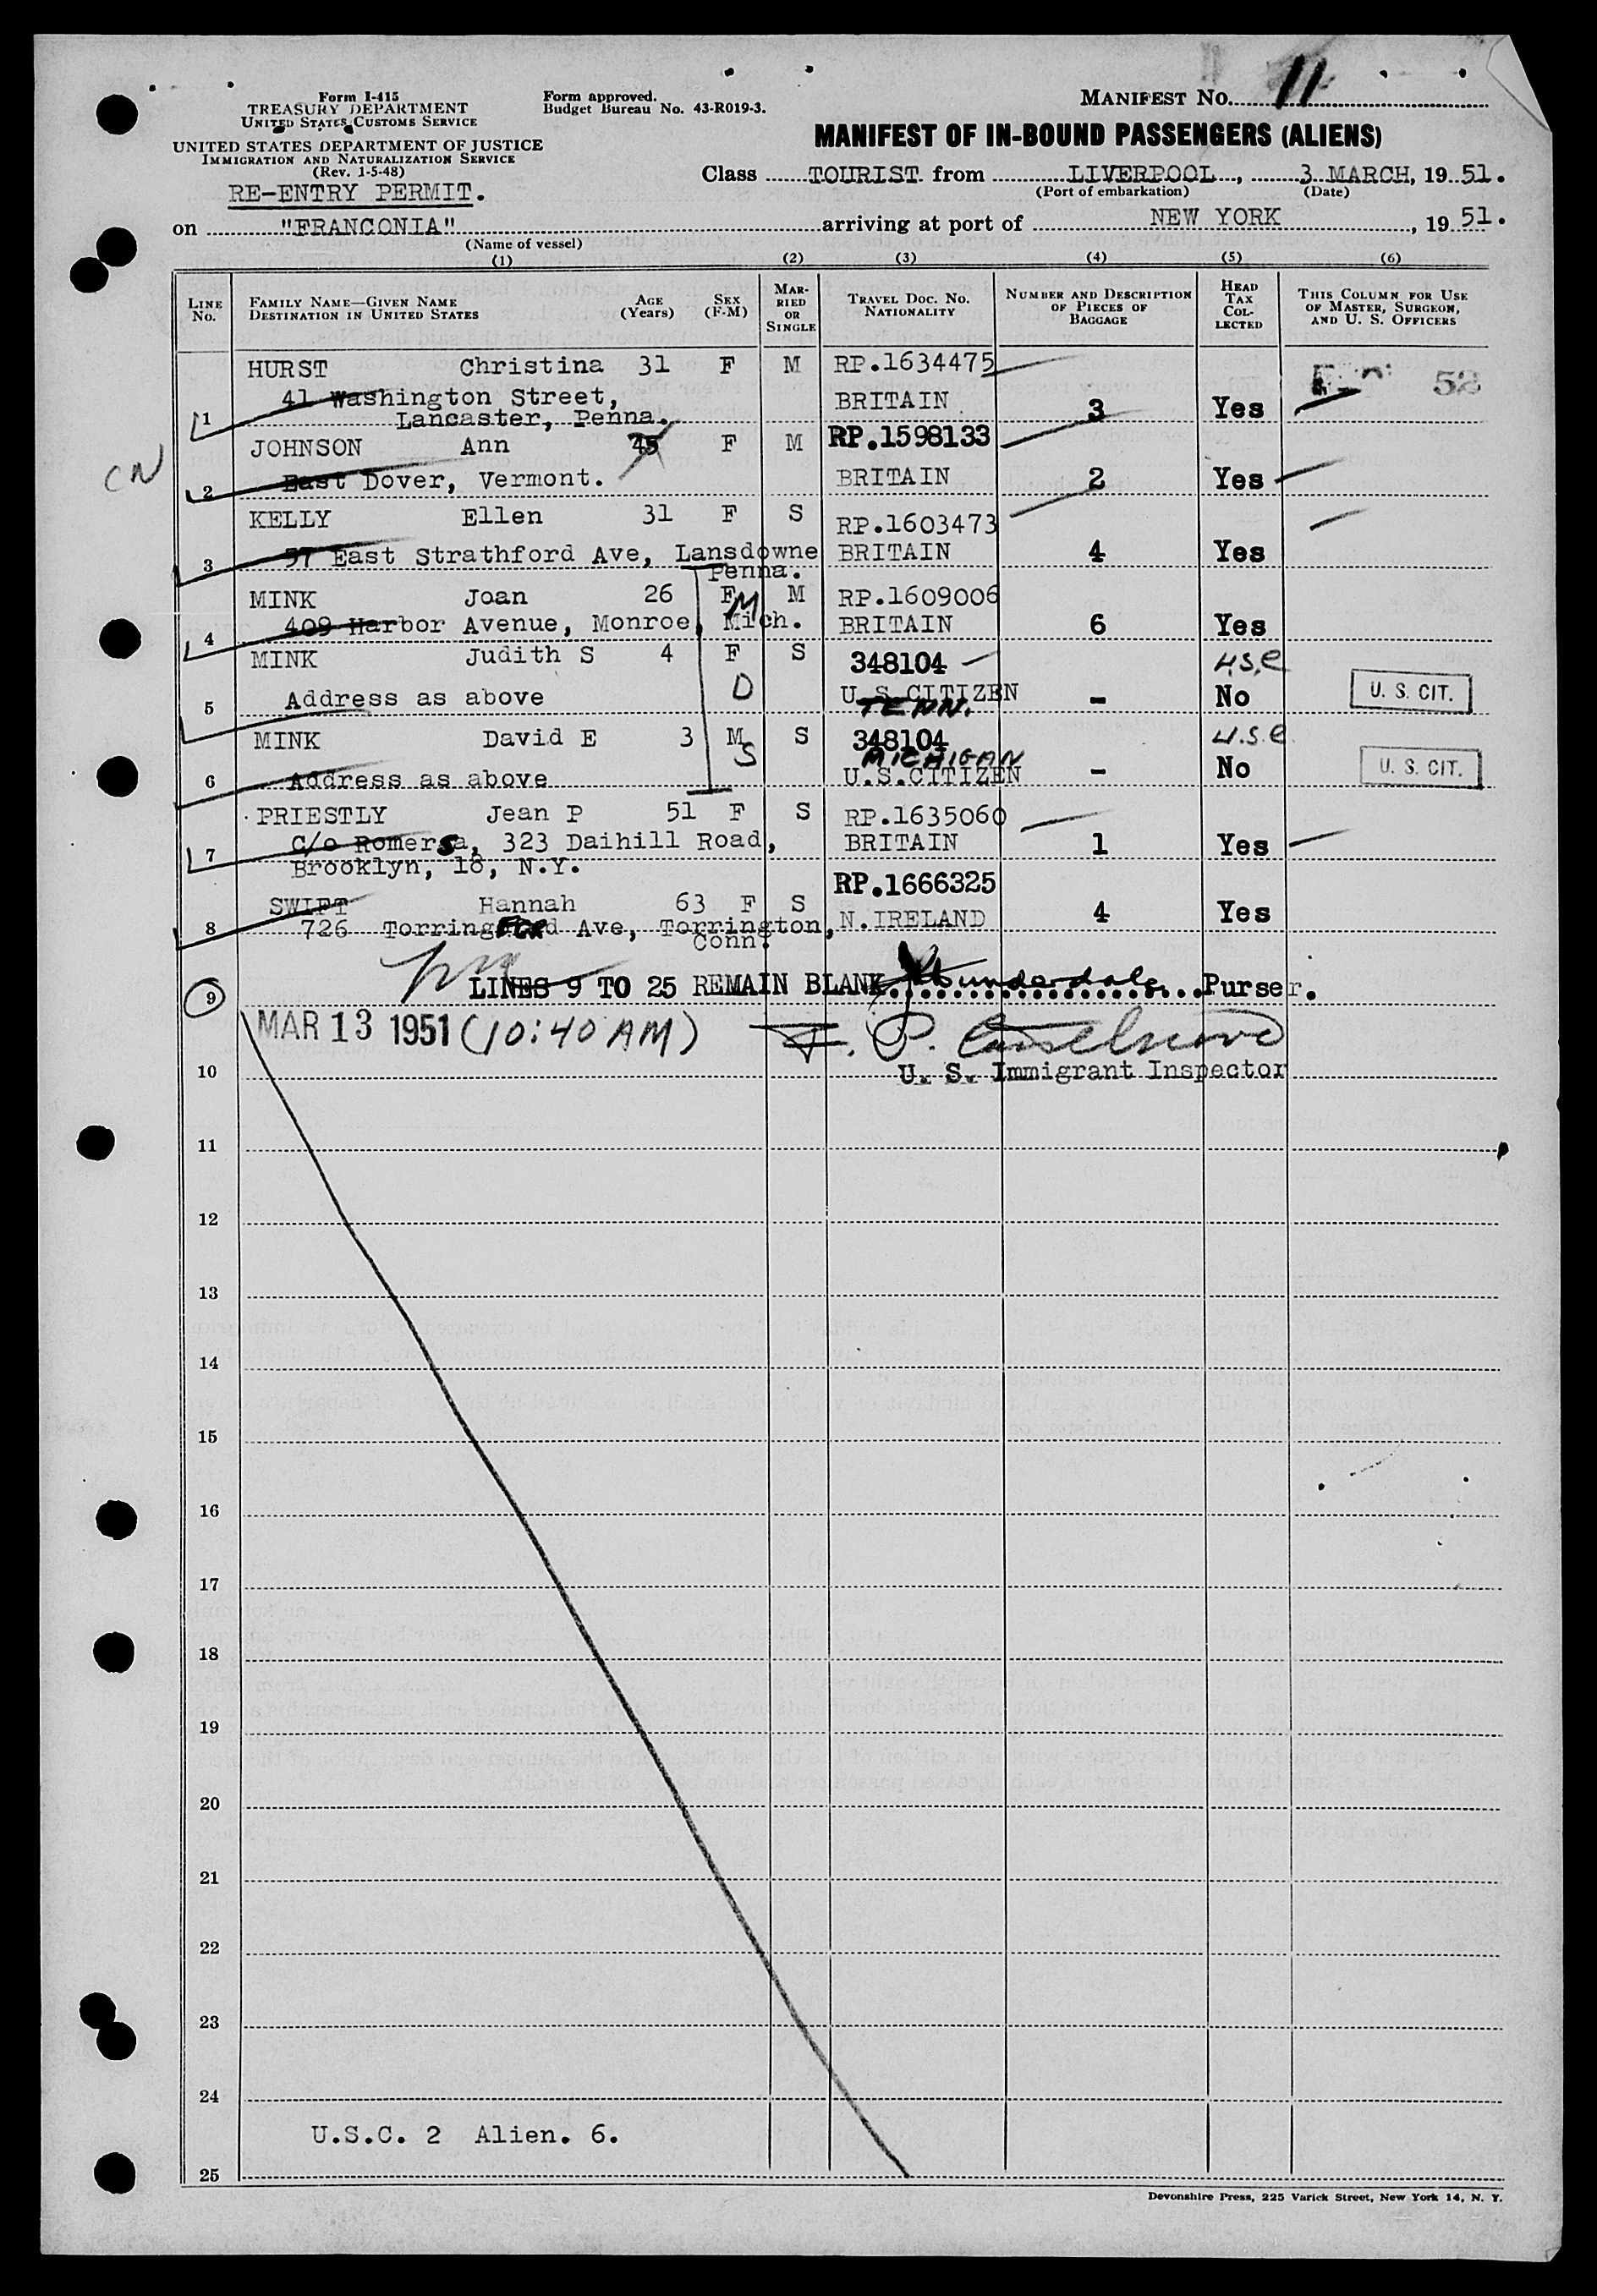 Form I-415
TREASURY DEPARTMENT
UNITED STATES CUSTOMS SERVICE
UNITED STATES DEPARTMENT OF JUSTICE
IMMIGRATION AND NATURALIZATION SERVICE
(Rev. 1-5-48)
RE-ENTRY PERMIT.
Form approved.
Budget Bureau No. 43-R019-3.
MANIFEST NO. 11
MANIFEST OF IN-BOUND PASSENGERS (ALIENS)
Class TOURIST from LIVERPOOL, 3 MARCH, 19 51.
(Port of embarkation) (Date)
on "FRANCONIA" arriving at port of NEW YORK, 19 51.
(Name of vessel)
(1) (2) (3) (4) (5) (6)
LINE NO. FAMILY NAME—GIVEN NAME DESTINATION IN UNITED STATES AGE (YEARS) SEX (F-M) MARRIED OR SINGLE TRAVEL DOC. NO. NATIONALITY NUMBER AND DESCRIPTION OF PIECES OF BAGGAGE HEAD TAX COLLECTED THIS COLUMN FOR USE OF MASTER, SURGEON, AND U. S. OFFICERS
HURST Christina 31 F M RP.1634475 52
41 Washington Street, BRITAIN 3 Yes
1 Lancaster, Penna.
JOHNSON Ann 45 F M RP.1598133
CN
2 East Dover, Vermont. BRITAIN 2 Yes
KELLY Ellen 31 F S RP.1603473
3 37 East Strathford Ave, Lansdowne BRITAIN 4 Yes
Penna.
MINK Joan 26 F M RP.1609006
M
4 409 Harbor Avenue, Monroe, Mich. BRITAIN 6 Yes
MINK Judith S 4 F S 348104 U.S.C
5 Address as above D U.S.CITIZEN - No U. S. CIT.
TENN.
MINK David E 3 M S 348104 U.S.C.
S MICHIGAN
6 Address as above U.S.CITIZEN - No U. S. CIT.
PRIESTLY Jean P 51 F S RP.1635060
7 C/o Romersa, 323 Daihill Road, BRITAIN 1 Yes
Brooklyn, 18, N.Y.
RP.1666325
SWIFT Hannah 63 F S
8 726 Torringford Ave, Torrington, N.IRELAND 4 Yes
Conn.
9 LINES 9 TO 25 REMAIN BLANK. Purser.
MAR 13 1951 (10:40 AM)
U. S. Immigrant Inspector
10
11
12
13
14
15
16
17
18
19
20
21
22
23
24
U.S.C. 2 Alien. 6.
25
Devonshire Press, 225 Varick Street, New York 14, N. Y.